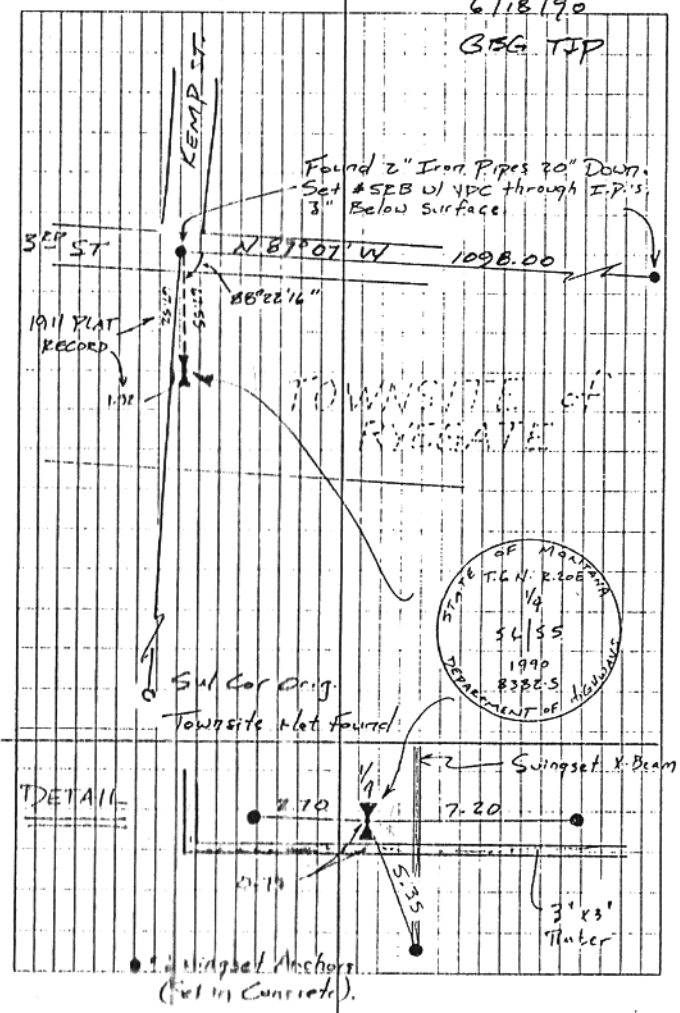 6/18/90
KEMP ST.
Found 2" Iron Pipes 20" Down.
Set #5RB w/ YPC through I.P.'s
3" Below Surface
3RD ST
N 87° 07' W
1098.00
88°22'16"
1911 PLAT
RECORD
TOWNSITE of
RYEGATE
STATE OF MONTANA
T.6 N. R.20E
1/4
S4 | S5
1990
8382-S
DEPARTMENT OF HIGHWAYS
Sw Cor Orig.
Townsite Not Found
DETAIL
1/4
Swingset X-Beam
7.20
5.35
3" x 3"
Timber
Swingset Anchors
(Set in Concrete).